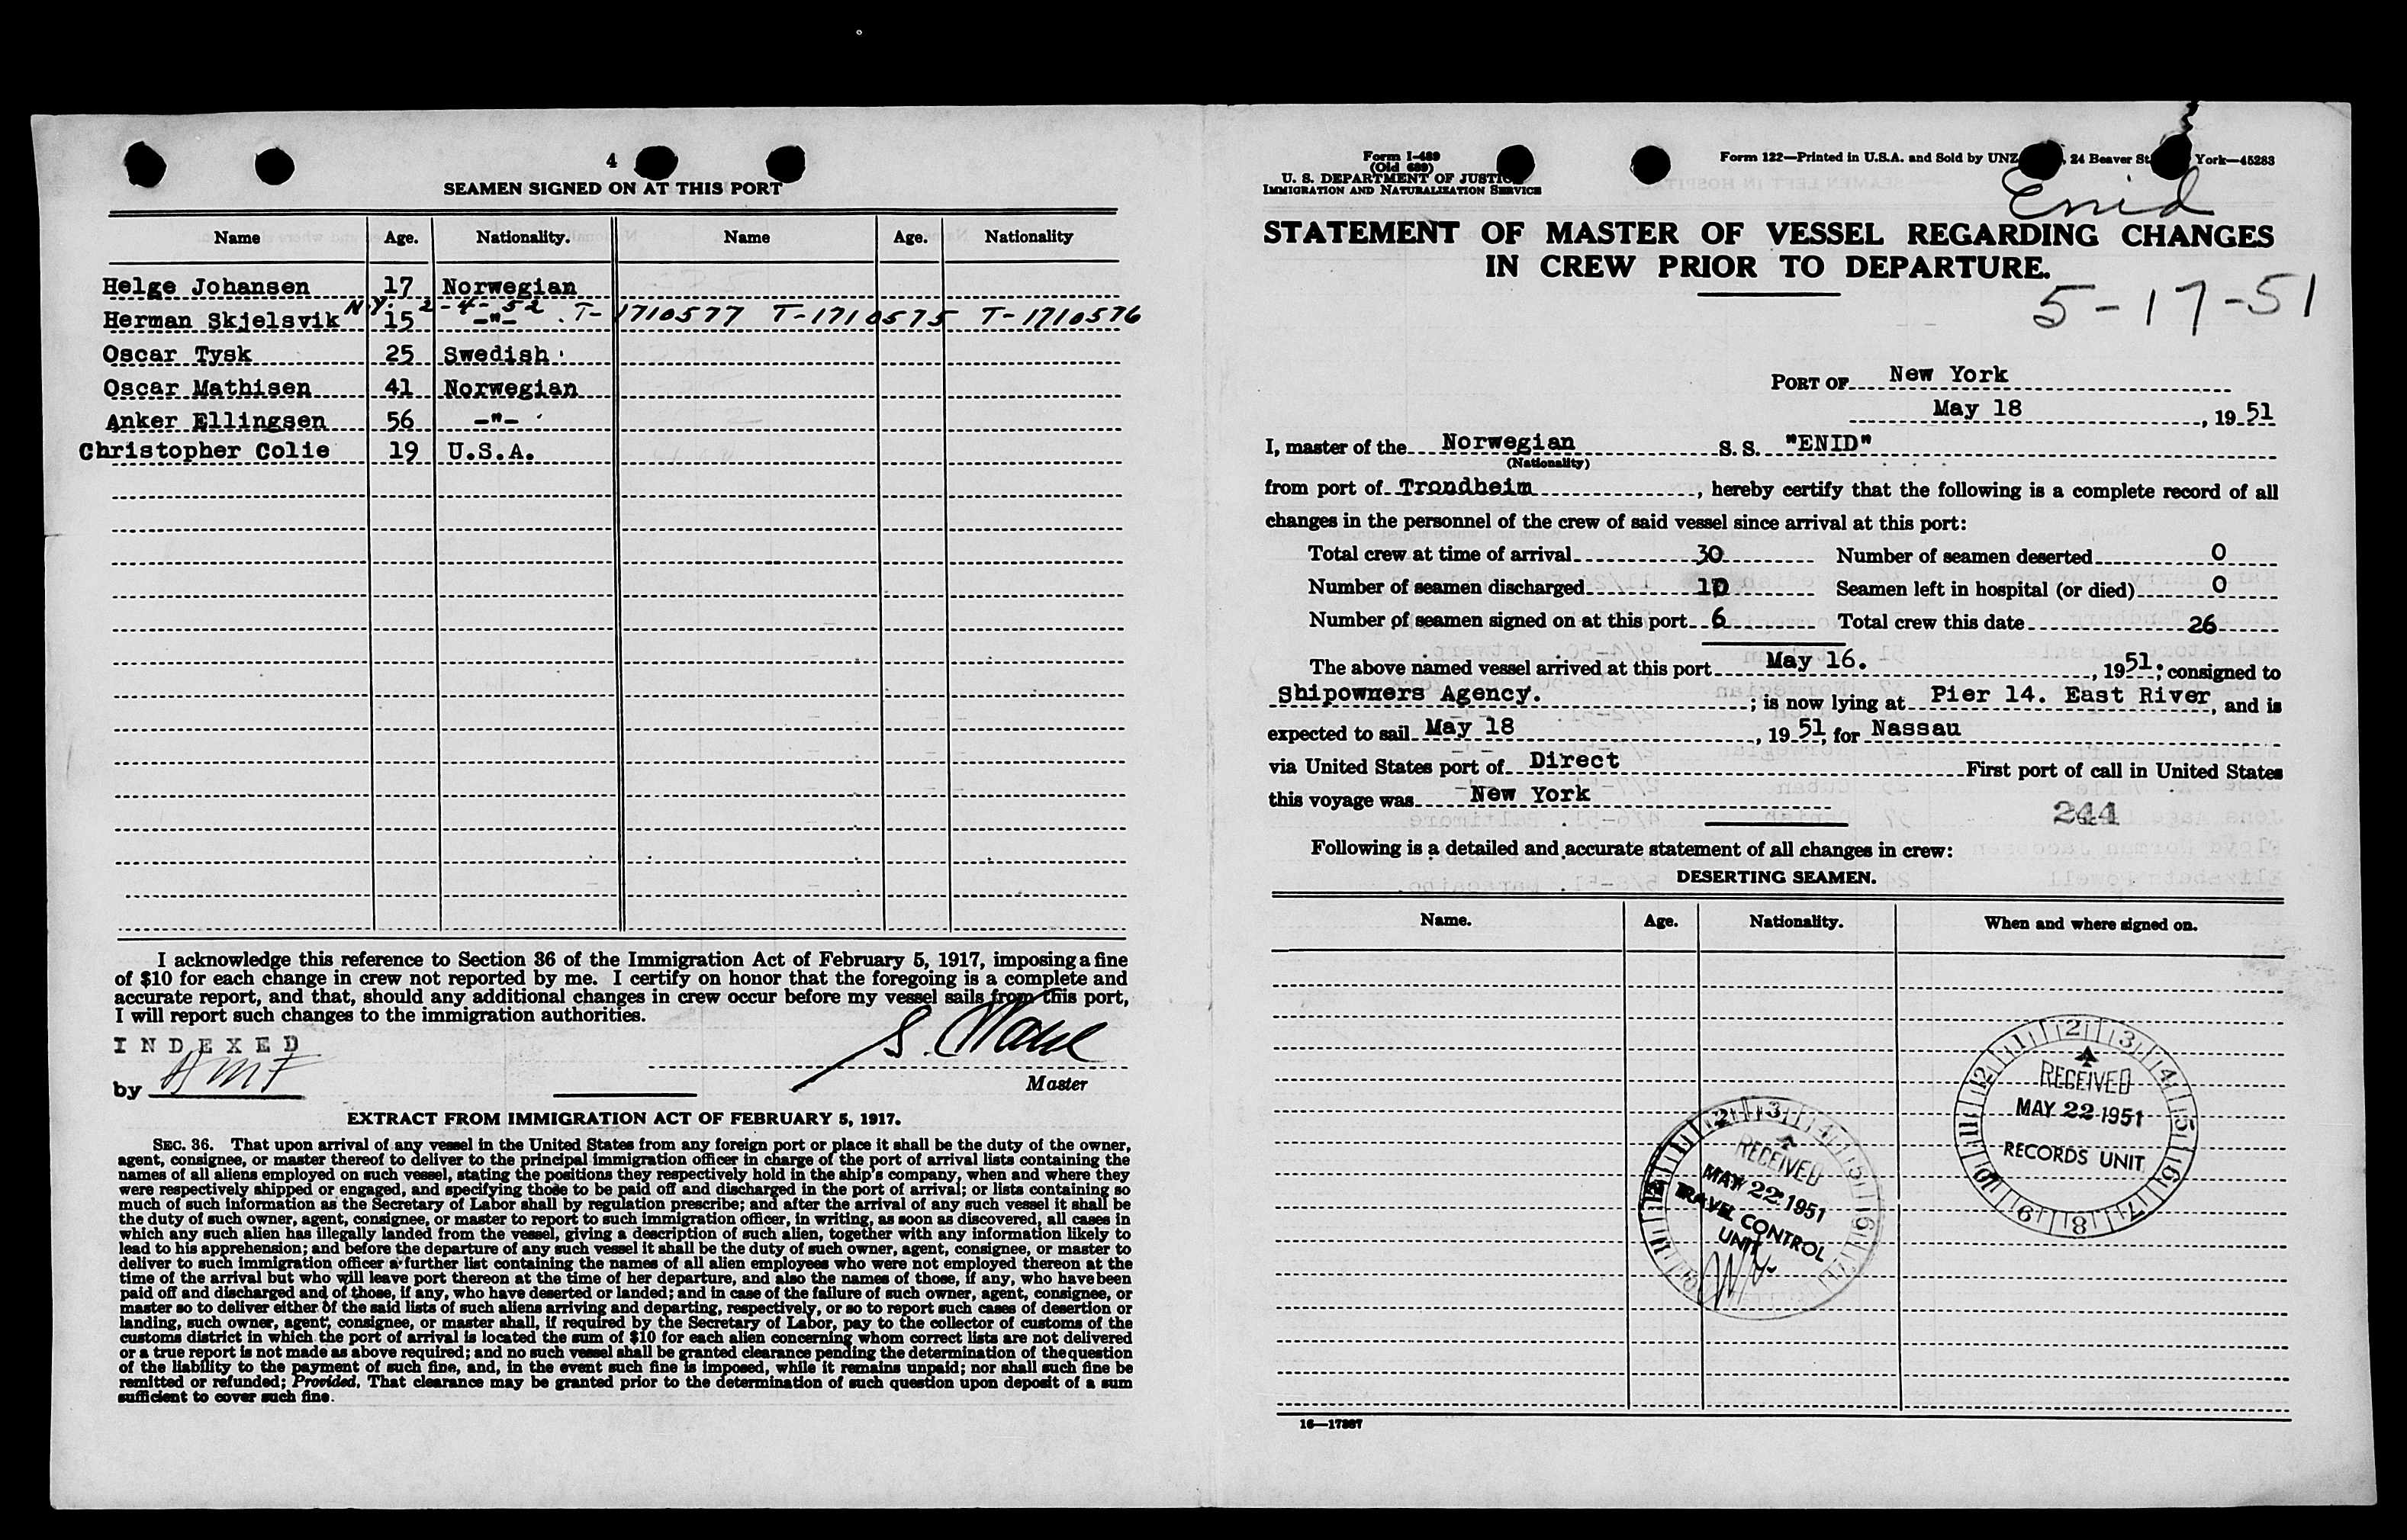 4
SEAMEN SIGNED ON AT THIS PORT
Name Age. Nationality. Name Age. Nationality
Helge Johansen 17 Norwegian
N.Y. 2-4-52 T-1710577 T-1710575 T-1710576
Herman Skjelsvik 15 -"-
Oscar Tysk 25 Swedish
Oscar Mathisen 41 Norwegian
Anker Ellingsen 56 -"-
Christopher Colie 19 U.S.A.
I acknowledge this reference to Section 36 of the Immigration Act of February 5, 1917, imposing a fine
of $10 for each change in crew not reported by me. I certify on honor that the foregoing is a complete and
accurate report, and that, should any additional changes in crew occur before my vessel sails from this port,
I will report such changes to the immigration authorities.
INDEXED
by
Master
EXTRACT FROM IMMIGRATION ACT OF FEBRUARY 5, 1917.
SEC. 36. That upon arrival of any vessel in the United States from any foreign port or place it shall be the duty of the owner,
agent, consignee, or master thereof to deliver to the principal immigration officer in charge of the port of arrival lists containing the
names of all aliens employed on such vessel, stating the positions they respectively hold in the ship's company, when and where they
were respectively shipped or engaged, and specifying those to be paid off and discharged in the port of arrival; or lists containing so
much of such information as the Secretary of Labor shall by regulation prescribe; and after the arrival of any such vessel it shall be
the duty of such owner, agent, consignee, or master to report to such immigration officer, in writing, as soon as discovered, all cases in
which any such alien has illegally landed from the vessel, giving a description of such alien, together with any information likely to
lead to his apprehension; and before the departure of any such vessel it shall be the duty of such owner, agent, consignee, or master to
deliver to such immigration officer a further list containing the names of all alien employees who were not employed thereon at the
time of the arrival but who will leave port thereon at the time of her departure, and also the names of those, if any, who have been
paid off and discharged and of those, if any, who have deserted or landed; and in case of the failure of such owner, agent, consignee, or
master so to deliver either of the said lists of such aliens arriving and departing, respectively, or so to report such cases of desertion or
landing, such owner, agent, consignee, or master shall, if required by the Secretary of Labor, pay to the collector of customs of the
customs district in which the port of arrival is located the sum of $10 for each alien concerning whom correct lists are not delivered
or a true report is not made as above required; and no such vessel shall be granted clearance pending the determination of the question
of the liability to the payment of such fine, and, in the event such fine is imposed, while it remains unpaid; nor shall such fine be
remitted or refunded; Provided, That clearance may be granted prior to the determination of such question upon deposit of a sum
sufficient to cover such fine.
Form I-489
(Old 689)
U. S. DEPARTMENT OF JUSTICE
IMMIGRATION AND NATURALIZATION SERVICE
Form 122—Printed in U.S.A. and Sold by UNZ , 24 Beaver St. York—45283
Enid
STATEMENT OF MASTER OF VESSEL REGARDING CHANGES
IN CREW PRIOR TO DEPARTURE.
5-17-51
PORT OF New York
May 18, 1951
I, master of the Norwegian S. S. "ENID"
(Nationality)
from port of Trondheim, hereby certify that the following is a complete record of all
changes in the personnel of the crew of said vessel since arrival at this port:
Total crew at time of arrival 30 Number of seamen deserted 0
Number of seamen discharged 10 Seamen left in hospital (or died) 0
Number of seamen signed on at this port 6 Total crew this date 26
The above named vessel arrived at this port May 16., 1951; consigned to
Shipowners Agency.; is now lying at Pier 14. East River, and is
expected to sail May 18, 1951, for Nassau
via United States port of Direct First port of call in United States
this voyage was New York
244
Following is a detailed and accurate statement of all changes in crew:
DESERTING SEAMEN.
Name. Age. Nationality. When and where signed on.
RECEIVED
MAY 22 1951
RECORDS UNIT
RECEIVED
MAY 22 1951
TRAVEL CONTROL
UNIT
16—17887